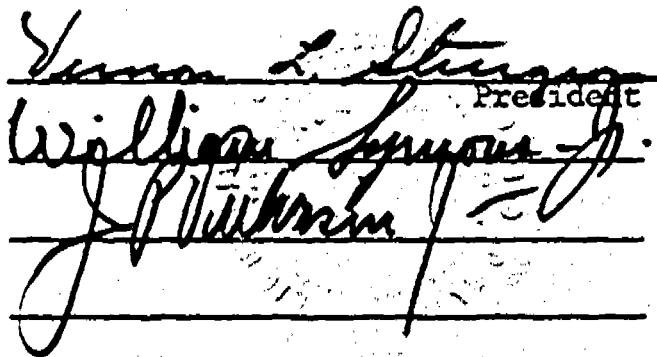 Vernon L. Sturgeon
President
William Symons Jr.
J P Vukasin